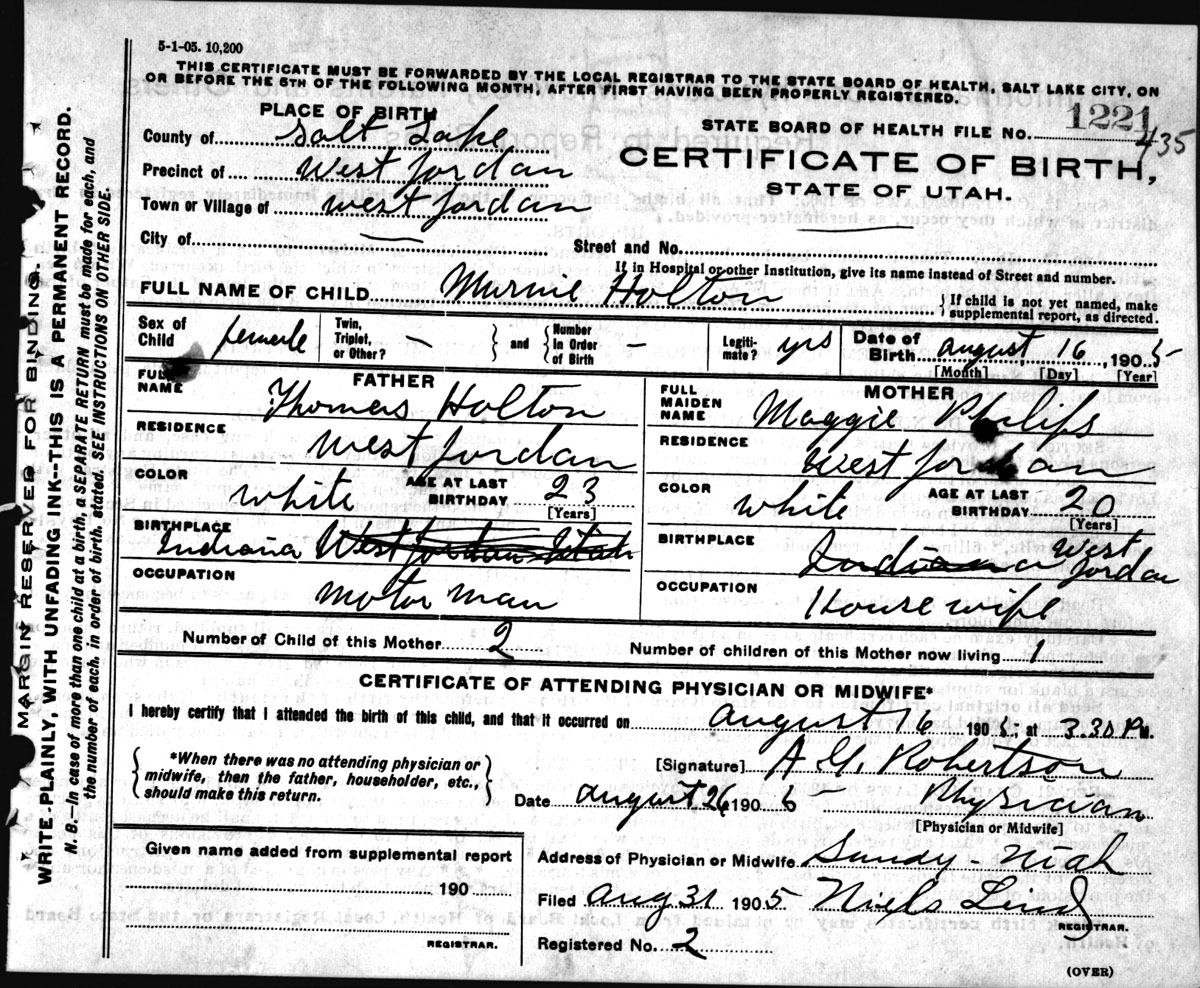 5-1-05. 10,200
THIS CERTIFICATE MUST BE FORWARDED BY THE LOCAL REGISTRAR TO THE STATE BOARD OF HEALTH, SALT LAKE CITY, ON
OR BEFORE THE 5TH OF THE FOLLOWING MONTH, AFTER FIRST HAVING BEEN PROPERLY REGISTERED.
PLACE OF BIRTH
County of Salt Lake
Precinct of West Jordan
Town or Village of West Jordan
City of
STATE BOARD OF HEALTH FILE No. 1221
435
CERTIFICATE OF BIRTH,
STATE OF UTAH.
Street and No.
If in Hospital or other Institution, give its name instead of Street and number.
FULL NAME OF CHILD Murnie Holton
} If child is not yet named, make
supplemental report, as directed.
Sex of Child female
Twin, Triplet, or Other? — } and { Number in Order of Birth —
Legitimate? yes
Date of Birth August 16, 1905
[Month] [Day] [Year]
FATHER
FULL NAME Thomas Holton
RESIDENCE West Jordan
COLOR white
AGE AT LAST BIRTHDAY 23
[Years]
BIRTHPLACE Indiana West Jordan Utah
OCCUPATION motor man
MOTHER
FULL MAIDEN NAME Maggie Philips
RESIDENCE West Jordan
COLOR white
AGE AT LAST BIRTHDAY 20
[Years]
BIRTHPLACE Indiana West Jordan
OCCUPATION House wife
Number of Child of this Mother 2
Number of children of this Mother now living 1
CERTIFICATE OF ATTENDING PHYSICIAN OR MIDWIFE*
I hereby certify that I attended the birth of this child, and that it occurred on August 16 1905; at 3.30 P M.
{ *When there was no attending physician or
midwife, then the father, householder, etc.,
should make this return. }
[Signature] A. G. Robertson
Date August 26 190
Physician
[Physician or Midwife]
Given name added from supplemental report
190
REGISTRAR.
Address of Physician or Midwife Sandy - Utah
Filed Aug 31 1905 Niels Lind
REGISTRAR.
Registered No. 2
(OVER)
MARGIN RESERVED FOR BINDING.
WRITE PLAINLY, WITH UNFADING INK--THIS IS A PERMANENT RECORD.
N. B.—In case of more than one child at a birth, a SEPARATE RETURN must be made for each, and
the number of each, in order of birth, stated. SEE INSTRUCTIONS ON OTHER SIDE.